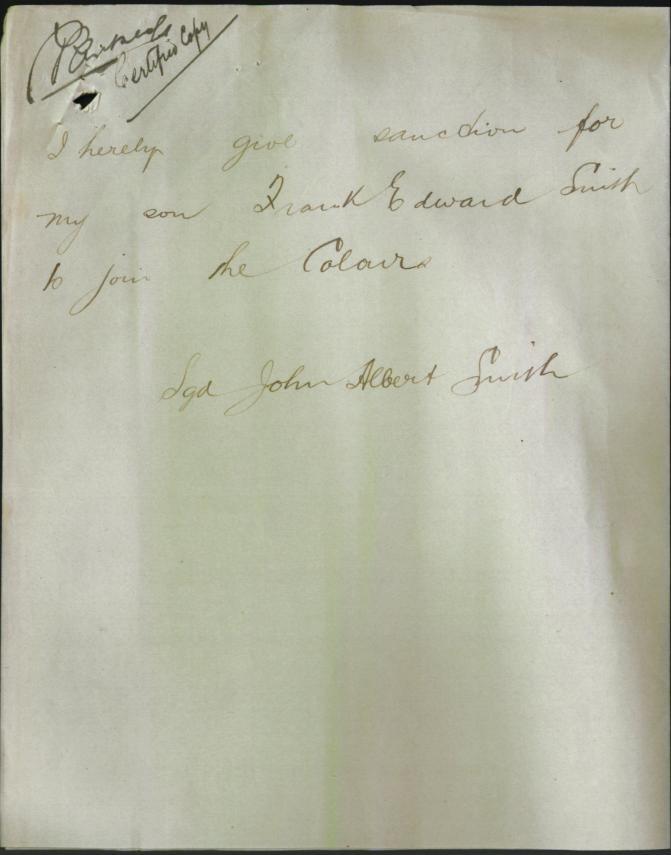 Certified Copy
I hereby give sanction for
my son Frank Edward Smith
to join the Colours
Sgd John Albert Smith